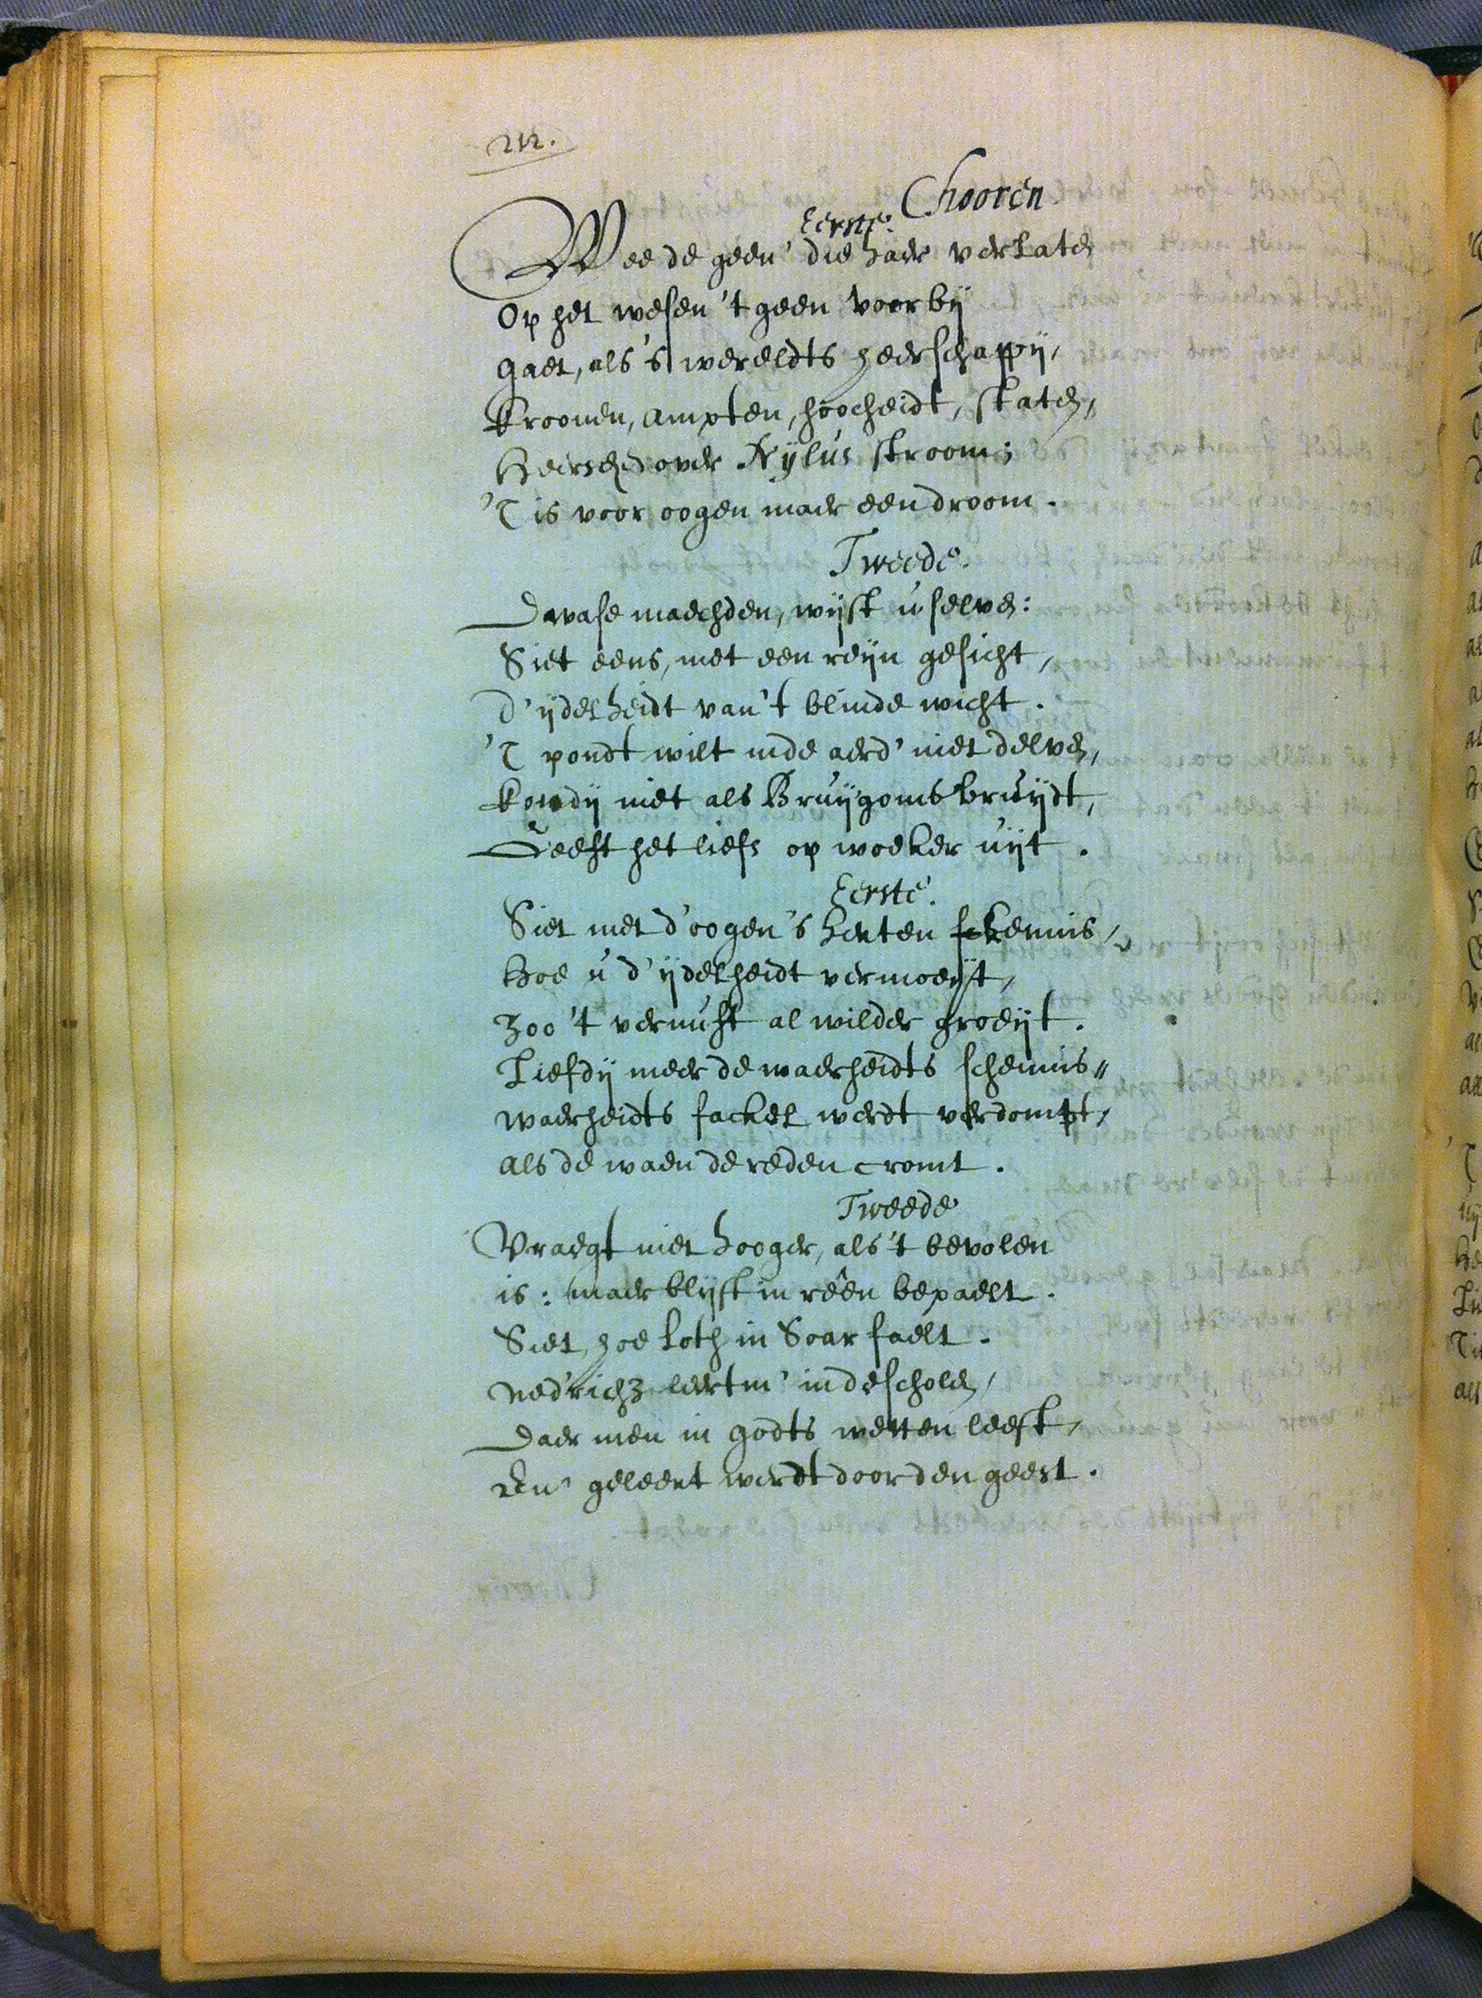 212.
Chooren
Eerste.
Wee de geen' die haer verlaten
Op het wesen 't geen voorby
Gaet, als 's werelts heerschappy,
Kroonen, ampten, hoocheidt, staten,
Heerschen over Nylus stroom;
'T is voor oogen maer een droom.
Tweede.
Dwase maechden, wyst u selven:
Siet eens, met een reyn gesicht,
D'ydelheidt van 't blinde wicht.
'T pondt wilt inde aerd' niet delven,
Kondy niet als Bruygoms bruydt,
Geeft het liefs op woeker uyt.
Eerste.
Siet met d'oogen 's herten kennis,
Hoe u d'ydelheidt vermoeyt,
Zoo 't vernuft al wilder groeyt.
Liefdy meer de waerheidts schennis,
Waerheidts fackel werdt verdompt,
Als de waen de reden cromt.
Tweede
Vraegt niet hooger, als 't bevolen
is: maer blyft in reên bepaelt.
Siet, hoe Loth in Soar faelt.
Ned'rich leertm' in de scholen,
Daer men in Godts wetten leest,
En geleert werdt door den geest.